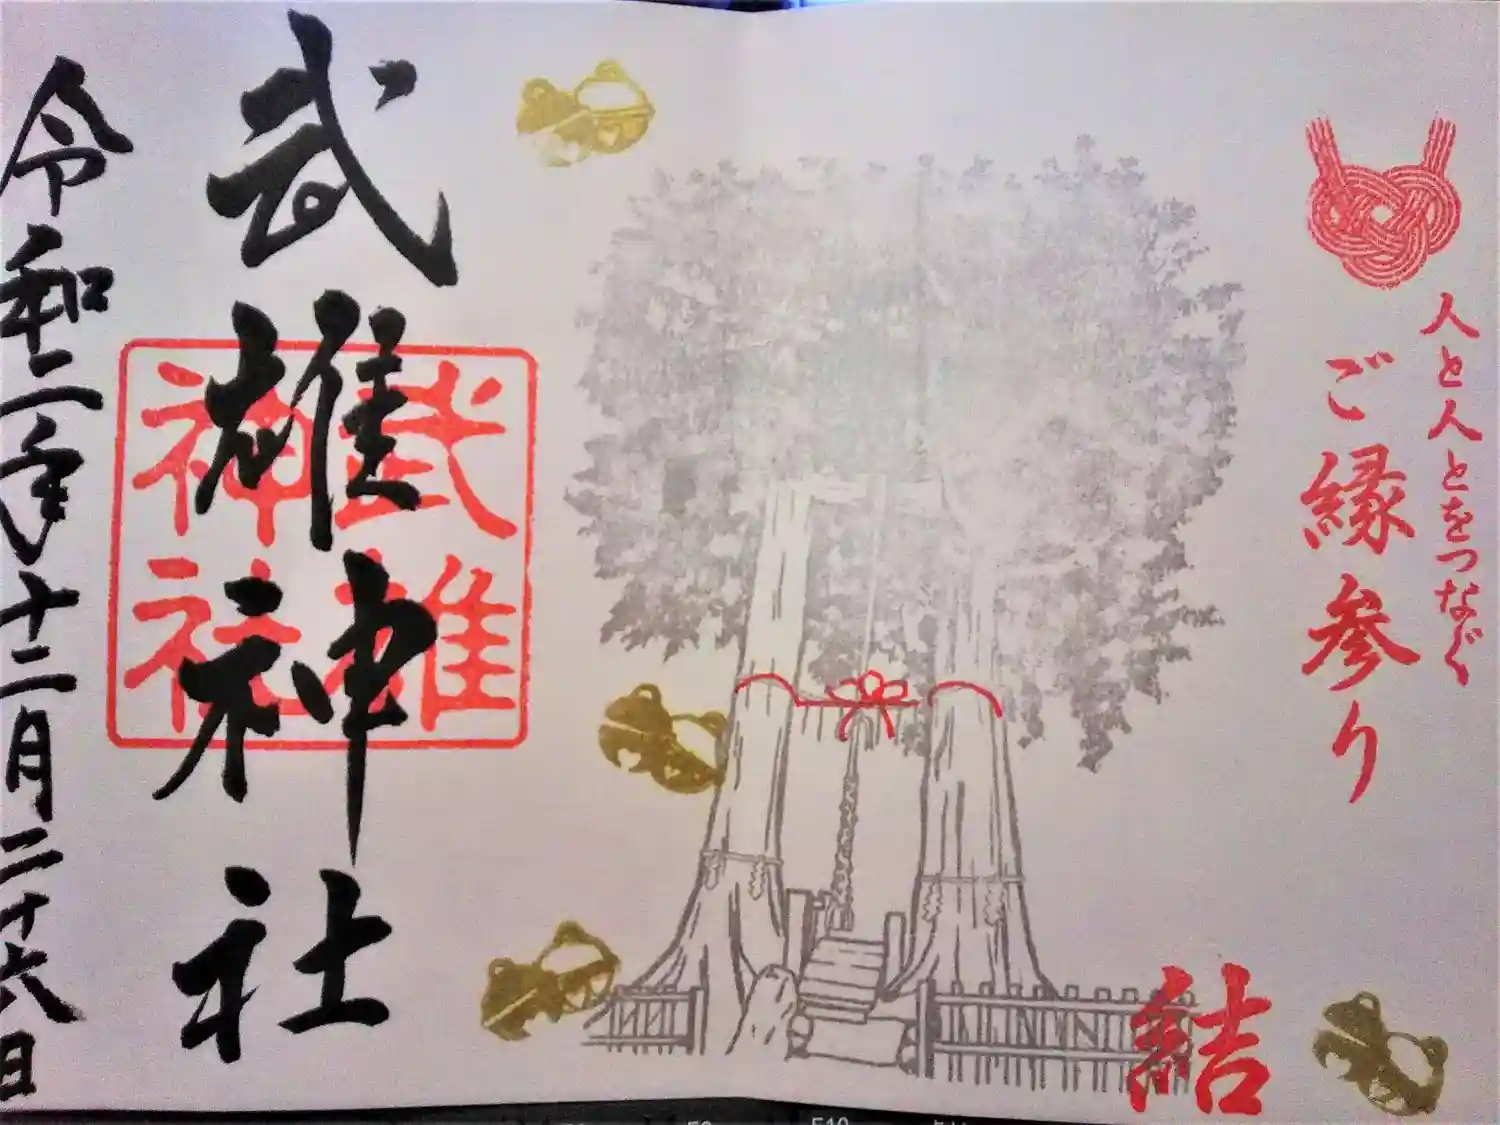 人と人とをつなぐ
ご縁参り
結
武雄神社
武雄
神社
令和二年十二月二十六日
F9
F10